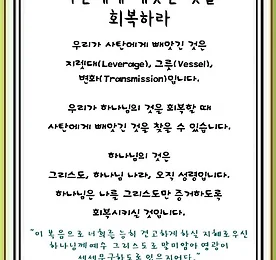 회복하라
우리가 사탄에게 빼앗긴 것은
지렛대(Leverage), 그릇(Vessel),
변화(Transmission)입니다.
우리가 하나님의 것을 회복할 때
사탄에게 빼앗긴 것을 찾을 수 있습니다.
하나님의 것은
그리스도, 하나님 나라, 오직 성령입니다.
하나님은 나를 그리스도만 증거하도록
회복시키신 것입니다.
"이 복음으로 너희를 능히 견고하게 하실 지혜로우신
하나님께 예수 그리스도로 말미암아 영광이
세세무궁하도록 있을지어다."